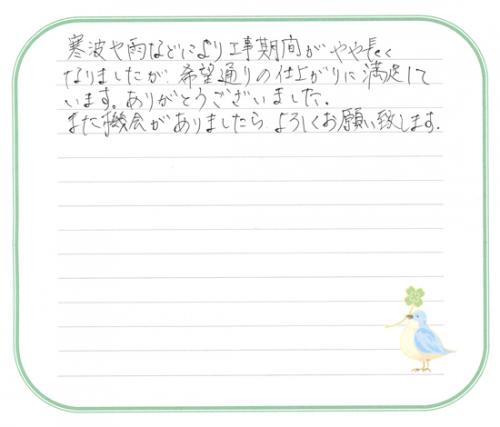 寒波や雨などにより工事期間がやや長く
なりましたが、希望通りの仕上がりに満足して
います。ありがとうございました.
また機会がありましたら、よろしくお願い致します.